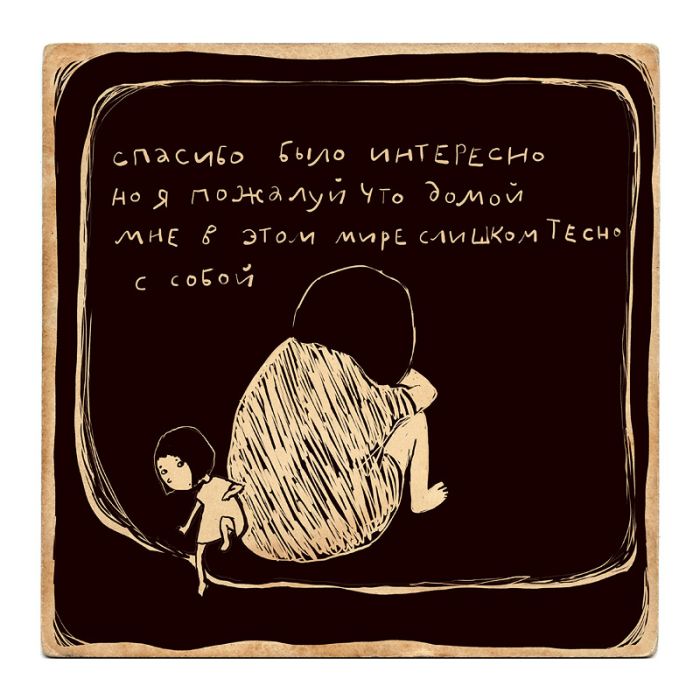 спасибо было интересно
но я пожалуй что домой
мне в этом мире слишком тесно
с собой